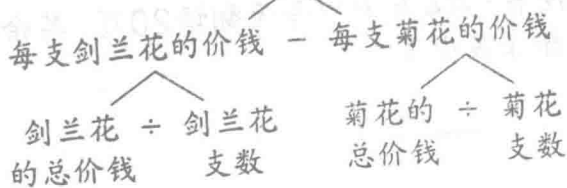 每支剑兰花的价钱 － 每支菊花的价钱
剑兰花的总价钱 ÷ 剑兰花支数
菊花的总价钱 ÷ 菊花支数